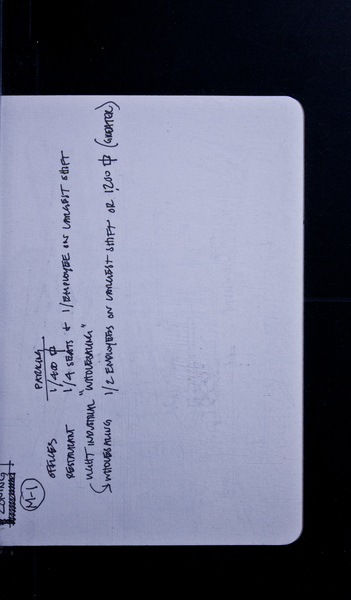 ZONING
M-1
PARKING
OFFICES 1/400 ⌽
RESTAURANT 1/4 SEATS + 1/EMPLOYEE ON LARGEST SHIFT
LIGHT INDUSTRIAL "WHOLESALING"
WHOLESALING 1/2 EMPLOYEES ON LARGEST SHIFT OR 1200 ⌽ (GREATER)